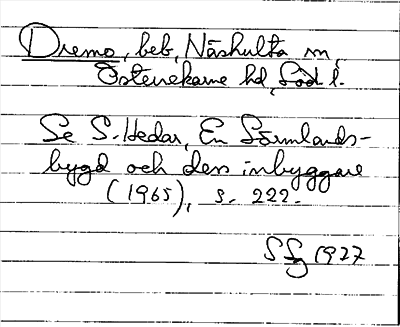 Dremo, beb, Näshulta sn,
Österrekarne hd, Södl.
Se S. Hedar, En Sörmlands-
bygd och dess inbyggare
(1965), s. 222.
SFg 1977